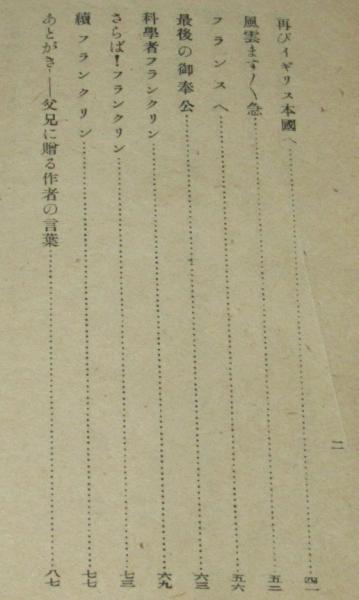 再びイギリス本國へ……四一
風雲ます〱急……五二
フランスへ……五六
最後の御奉公……六三
科學者フランクリン……六九
さらば！フランクリン……七三
續フランクリン……七七
あとがき——父兄に贈る作者の言葉……八七
二